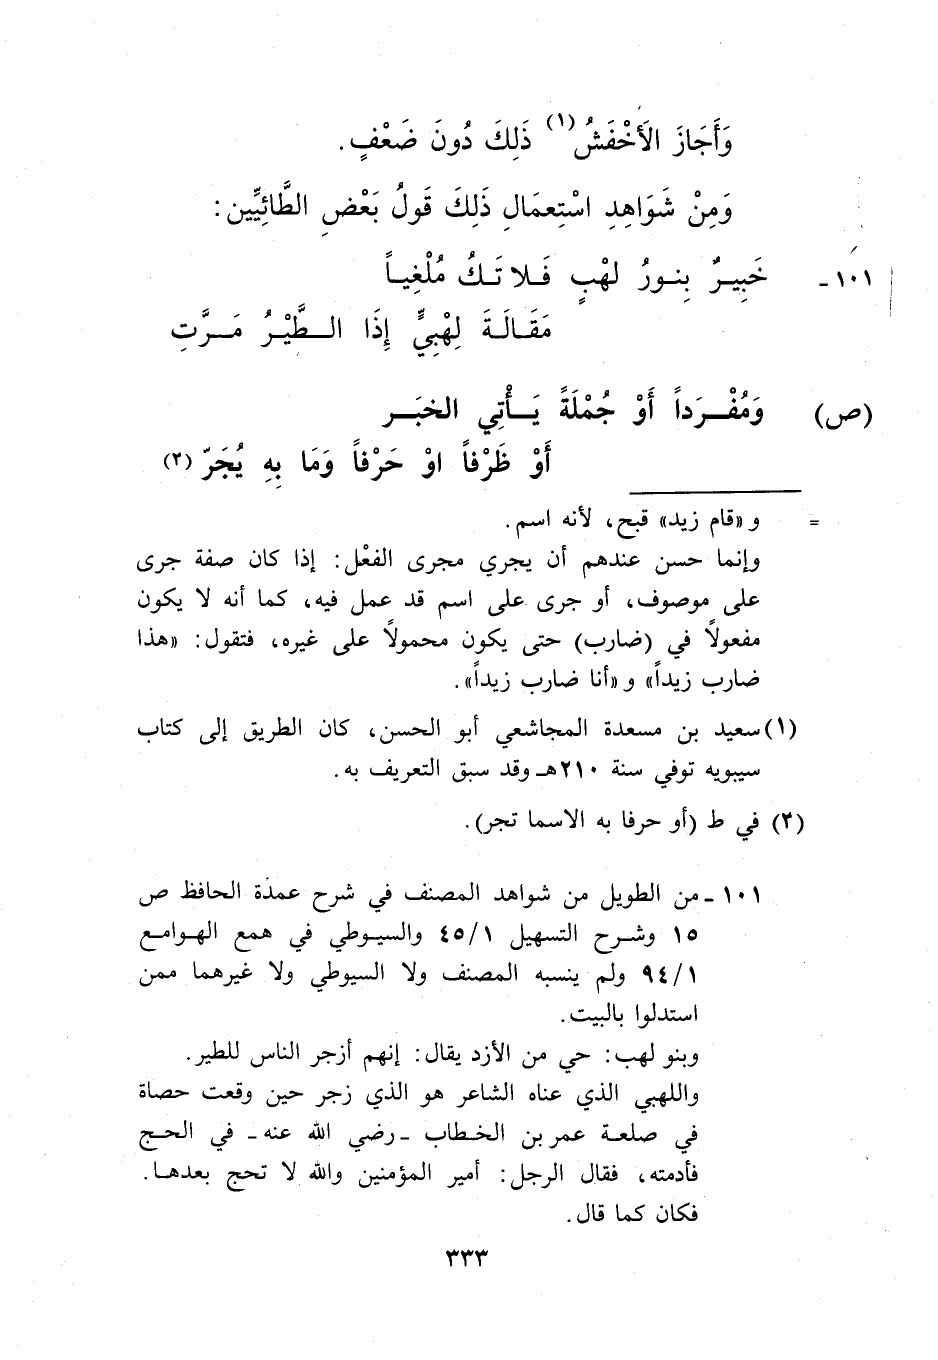 وَأَجَازَ الأَخْفَشُ(١) ذَلِكَ دُونَ ضَعْفٍ.
وَمِنْ شَوَاهِدِ اسْتِعمَالِ ذَلِكَ قَولُ بَعْضِ الطَّائِيِّين:
١٠١ - خَبِيرٌ بِنورُ لهْبٍ فَلا تَكُ مُلْغِياً
مَقَالَةَ لِهْبِيٍّ إِذَا الطَّيْرُ مَرَّتِ
(ص) وَمُفْرَداً أَوْ جُمْلَةً يَأْتِي الخبَر
أَوْ ظَرْفاً اوْ حَرْفاً وَمَا بِهِ يُجَرّ (٢)
= و «قام زيد» قبح، لأنه اسم.
وإنما حسن عندهم أن يجري مجرى الفعْل: إذا كان صفة جرى
على موصوف، أو جرى على اسم قد عمل فيه، كما أنه لا يكون
مفعولاً في (ضارب) حتى يكون محمولاً على غيره، فتقول: «هذا
ضارب زيداً» و «أنا ضارب زيداً».
(١) سعيد بن مسعدة المجاشعي أبو الحسن، كان الطريق إلى كتاب
سيبويه توفي سنة ٢١٠هـ وقد سبق التعريف به.
(٢) في ط (أو حرفا به الاسما تجر).
١٠١ - من الطويل من شواهد المصنف في شرح عمدة الحافظ ص
١٥ وشرح التسهيل ٤٥/١ والسيوطي في همع الهوامع
٩٤/١ ولم ينسبه المصنف ولا السيوطي ولا غيرهما ممن
استدلوا بالبيت.
وبنو لهب: حي من الأزد يقال: إنهم أزجر الناس للطير.
واللهبي الذي عناه الشاعر هو الذي زجر حين وقعت حصاة
في صلعة عمر بن الخطاب - رضي الله عنه - في الحج
فأدمته، فقال الرجل: أمير المؤمنين والله لا تحج بعدها.
فكان كما قال.
٣٣٣